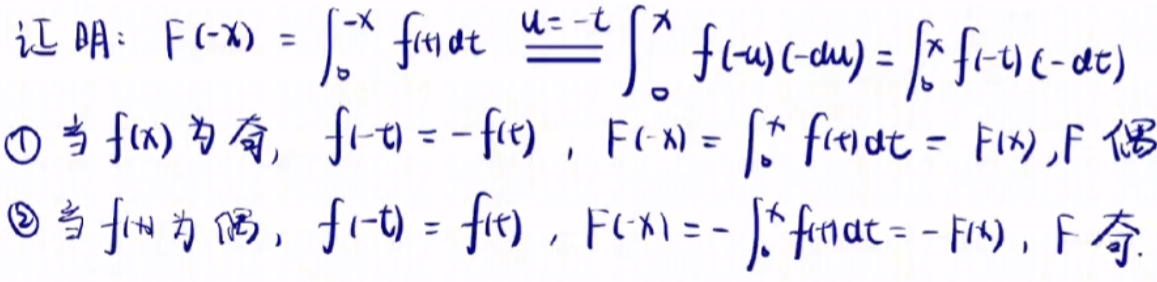 证明: F(-x) = ∫₀^{-x} f(t)dt \xlongequal{u=-t} ∫₀^{x} f(-u)(-du) = ∫₀^{x} f(-t)(-dt)
① 当 f(x) 为奇, f(-t) = -f(t), F(-x) = ∫₀^{x} f(t)dt = F(x), F 偶
② 当 f(x) 为偶, f(-t) = f(t), F(-x) = -∫₀^{x} f(t)dt = -F(x), F 奇.